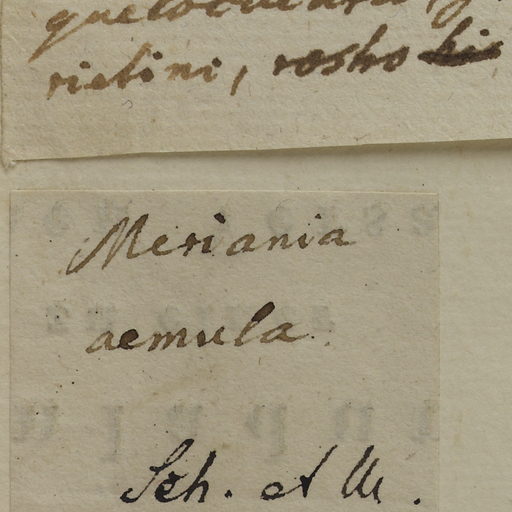 rietini, rostro
Meriania
aemula
Sch. et M.